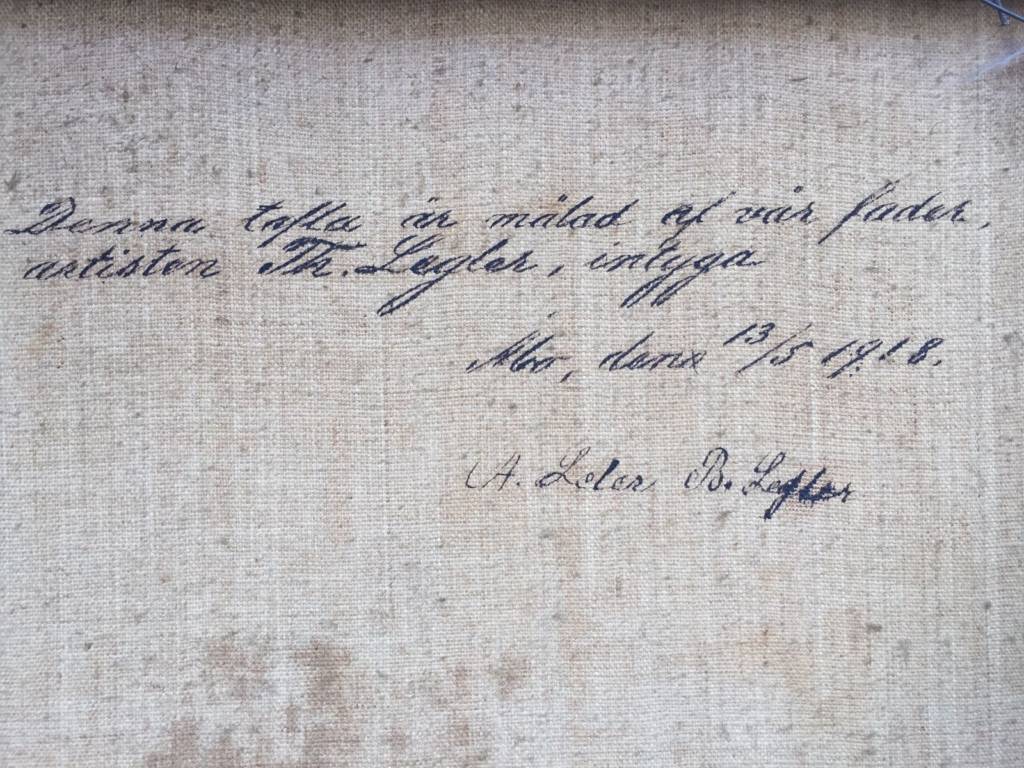 Denna tafla är målad af vår fader,
artisten Th. Legler, intyga
Åbo, den 13/5 1918.
A. Legler B. Legler